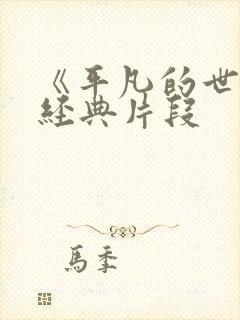 《平凡的世
經典片段
馬季